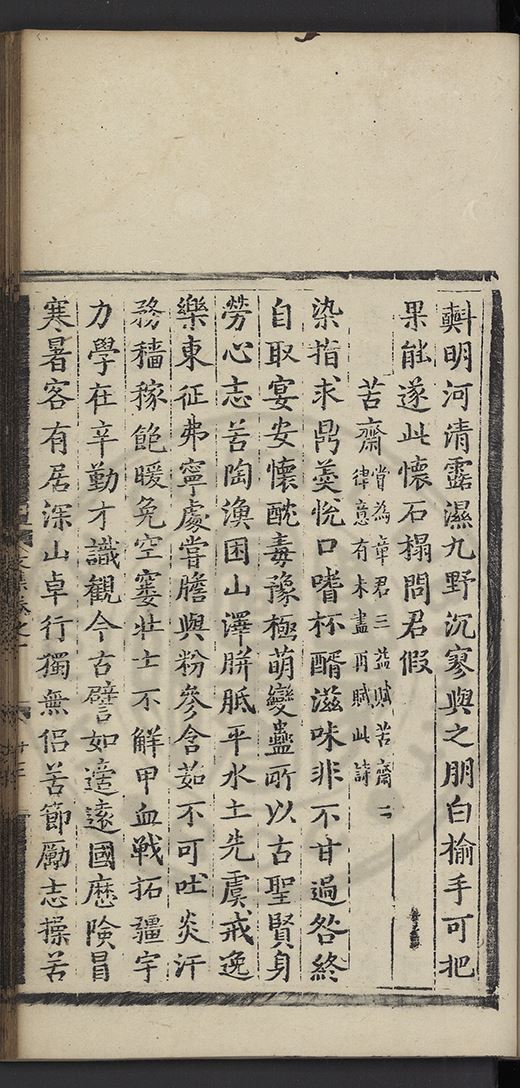 㪺明河清露濕九野沉寥與之朋白榆手可把
果能遂此懷石榻問君假
苦齋
嘗為章君三益賦苦齋二
律意有未盡再賦此詩
染指求鼎羹悅口嗜杯醑滋味非不甘過咎終
自取宴安懷酖毒豫極萌變蠱所以古聖賢身
勞心志苦陶漁困山澤胼胝平水土先虞戒逸
樂東征弗寧處嘗膽與粉參含茹不可吐炎汗
務穡稼飽暖免空窶壯士不解甲血戰拓疆宇
力學在辛勤才識觀今古譬如適遠國歷險冒
寒暑客有居深山卓行獨無侶苦節勵志操苦